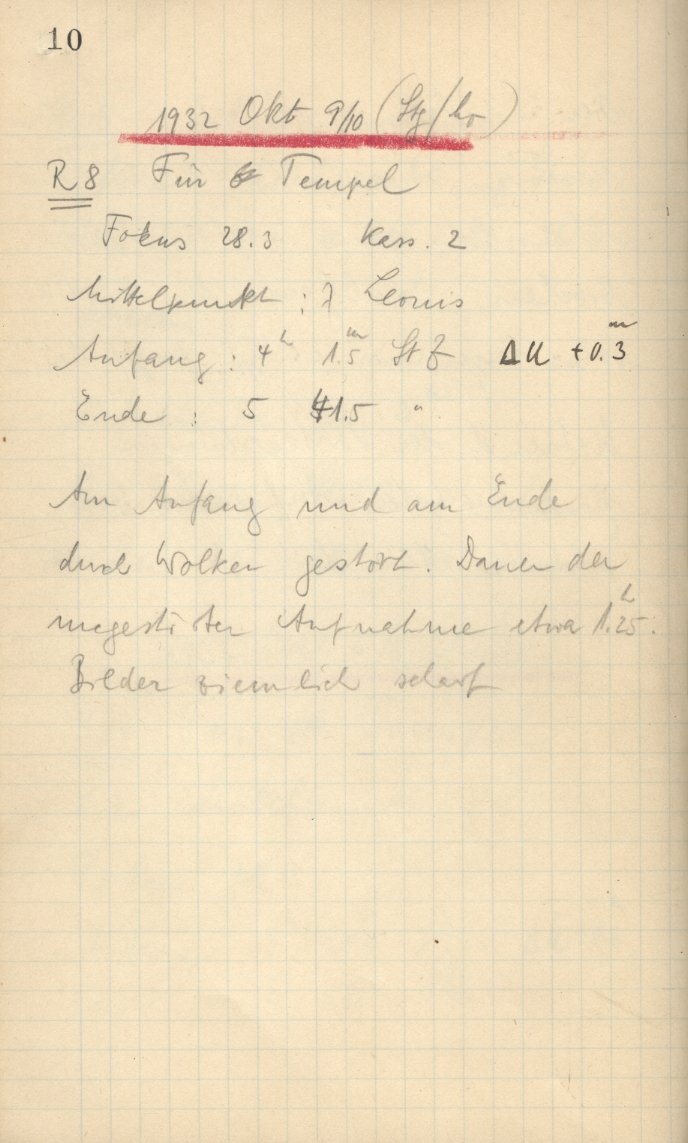 10
1932 Okt 9/10 (Stg/
R8 Für Tempel
Fokus 28.3 Kass. 2
Mittelpunkt : λ Leonis
Anfang : 4ʰ 1.5ᵐ StZ ΔU +0.3ᵐ
Ende : 5 41.5 "
Am Anfang und am Ende
durch Wolken gestört. Dauer der
ungestörten Aufnahme etwa 1.25ʰ.
Bilder ziemlich scharf